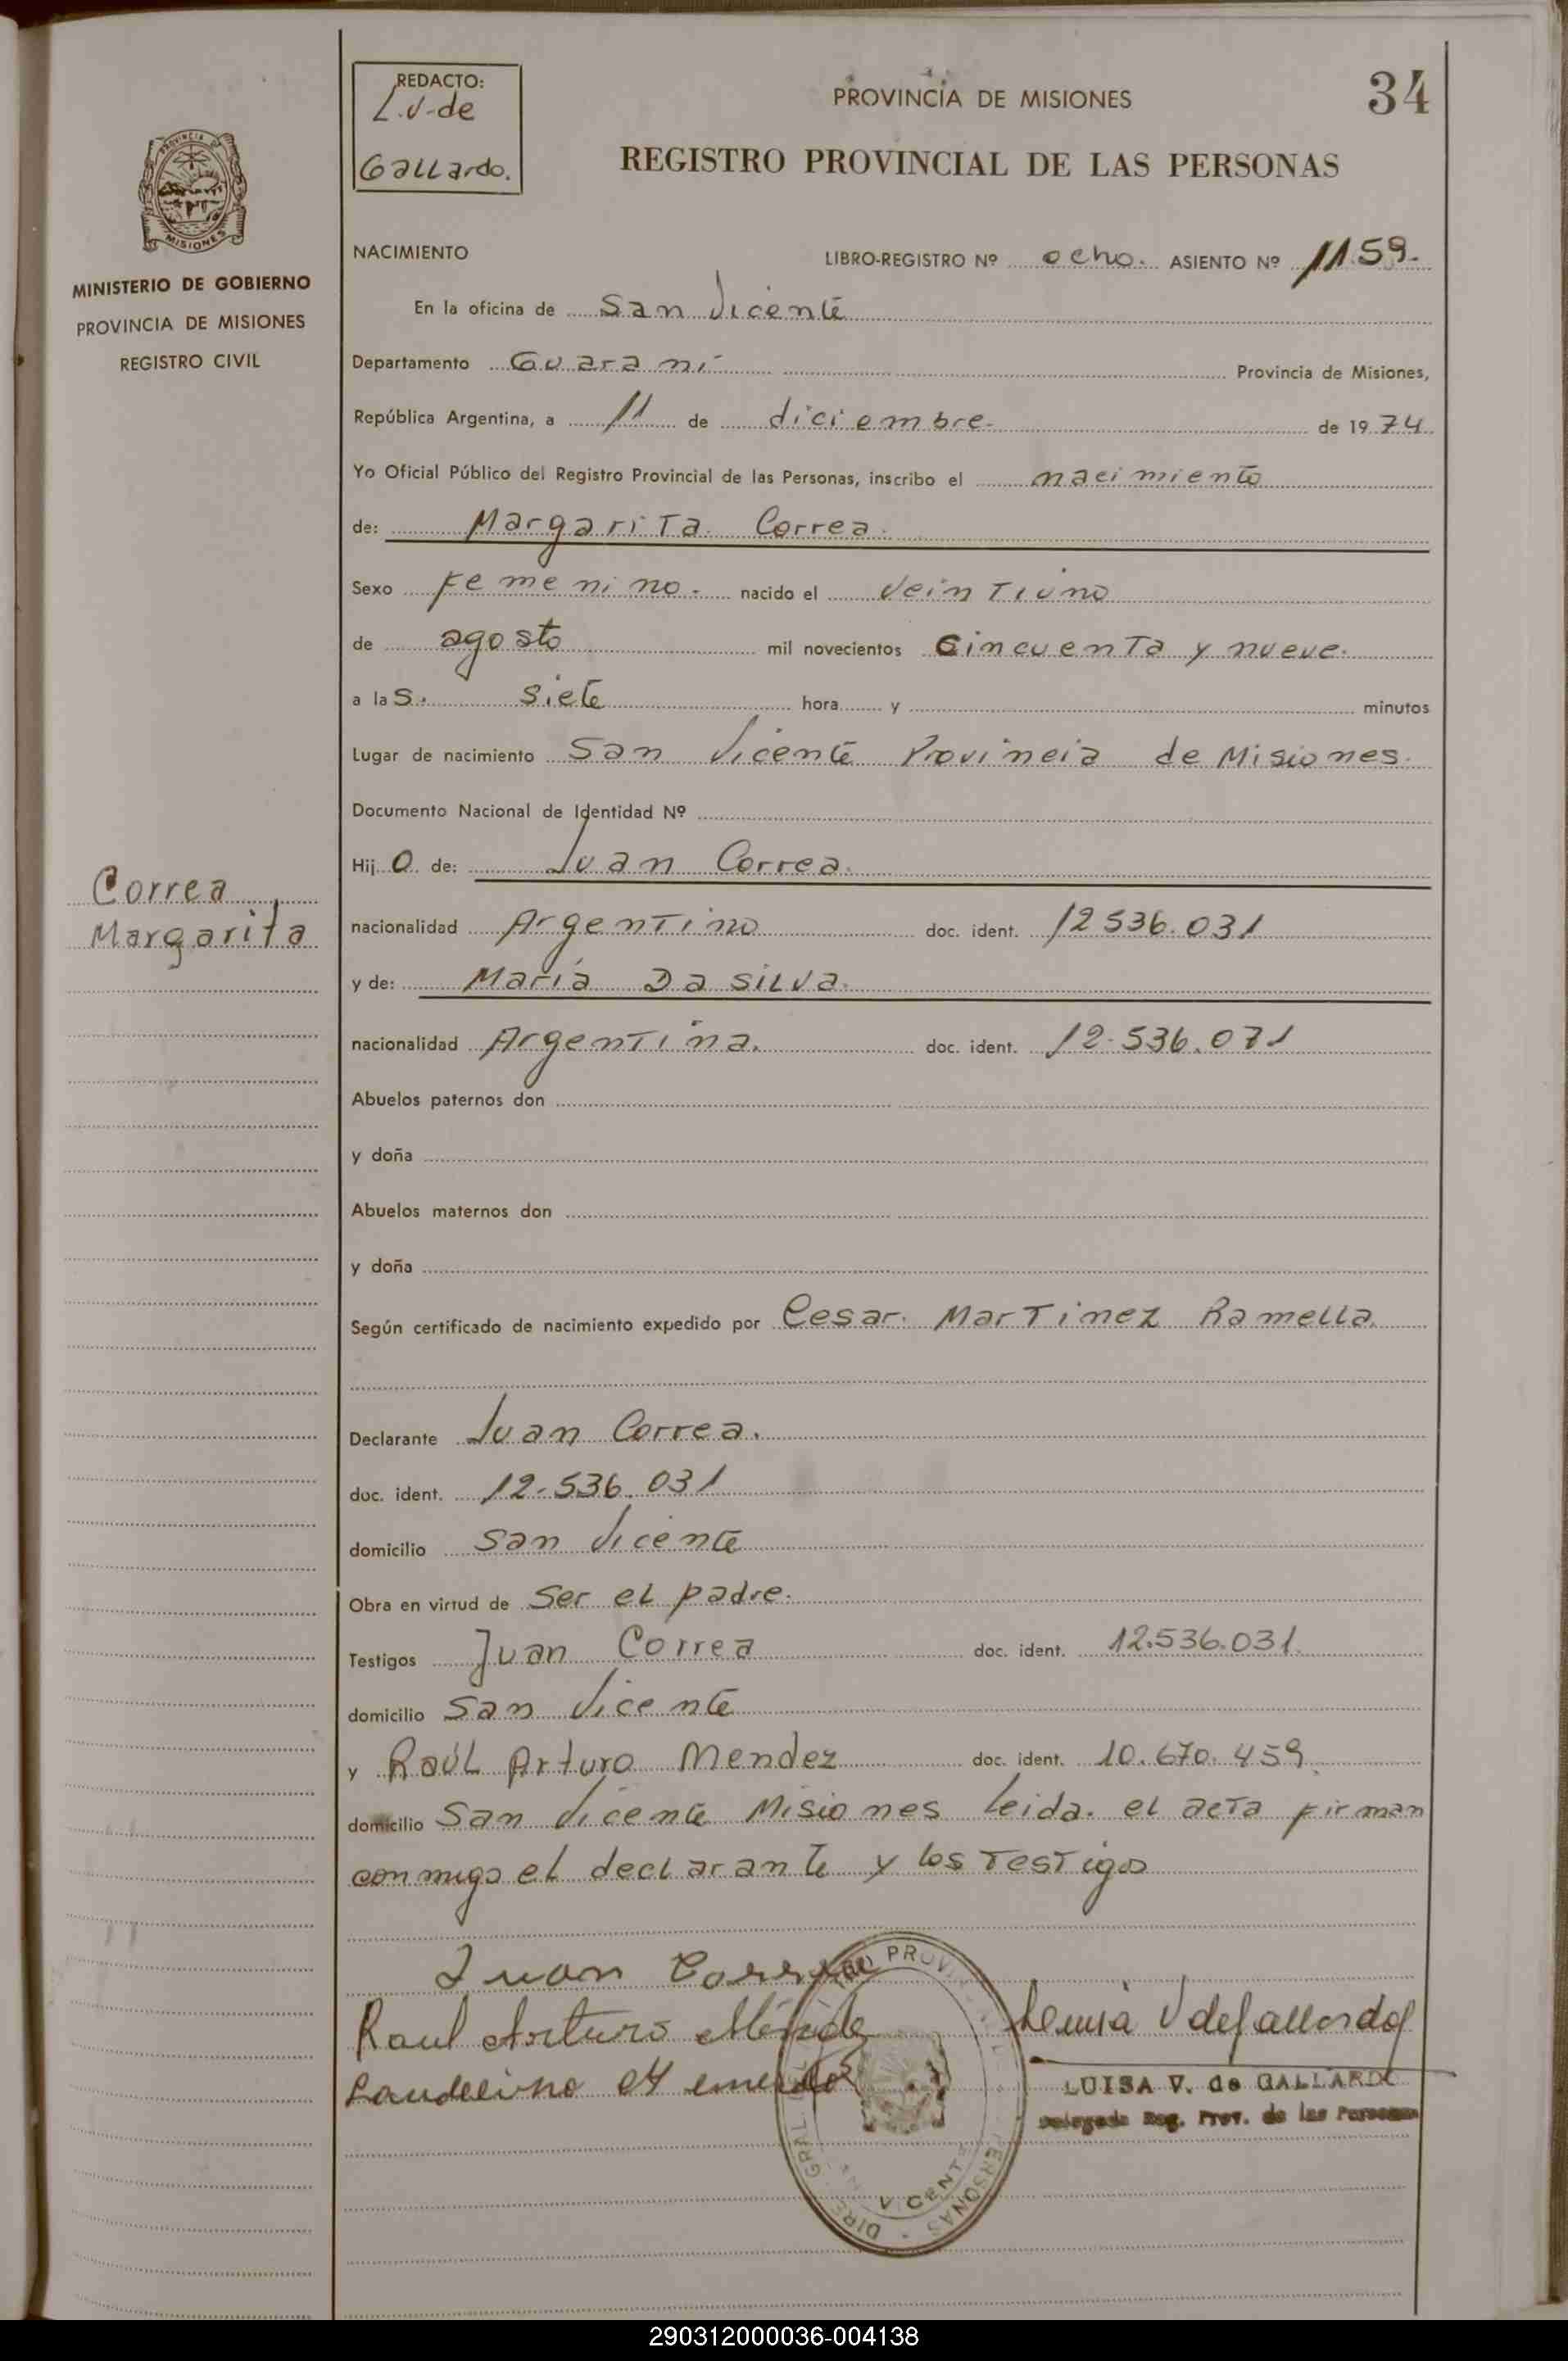 REDACTO:
L.V. de
Gallardo.
PROVINCIA DE MISIONES
34
REGISTRO PROVINCIAL DE LAS PERSONAS
PROVINCIA DE
MISIONES
MINISTERIO DE GOBIERNO
PROVINCIA DE MISIONES
REGISTRO CIVIL
NACIMIENTO
LIBRO-REGISTRO Nº ocho. ASIENTO Nº 1159.
En la oficina de San Vicente
Departamento Guarani Provincia de Misiones,
República Argentina, a 11 de diciembre de 1974
Yo Oficial Público del Registro Provincial de las Personas, inscribo el nacimiento
de: Margarita Correa.
Sexo Femenino. nacido el veintiuno
de agosto mil novecientos cincuenta y nueve.
a las. siete hora y minutos
Lugar de nacimiento San Vicente Provincia de Misiones.
Documento Nacional de Identidad Nº
Hijo de: Juan Correa.
Correa
Margarita
nacionalidad Argentino doc. ident. 12536.031
y de: María Da Silva.
nacionalidad Argentina. doc. ident. 12.536.071
Abuelos paternos don
y doña
Abuelos maternos don
y doña
Según certificado de nacimiento expedido por Cesar. Martinez Ramella.
Declarante Juan Correa.
doc. ident. 12.536.031
domicilio San Vicente
Obra en virtud de ser el padre.
Testigos Juan Correa doc. ident. 12.536.031.
domicilio San Vicente
y Raúl Arturo Mendez doc. ident. 10.670.459.
domicilio San Vicente Misiones leida. el acta firman
conmigo el declarante y los testigos
Juan Correa
Raul Arturo Méndez
Luisa V de Gallardo
LUISA V. de GALLARDO
Delegada Reg. Prov. de las Personas
290312000036-004138